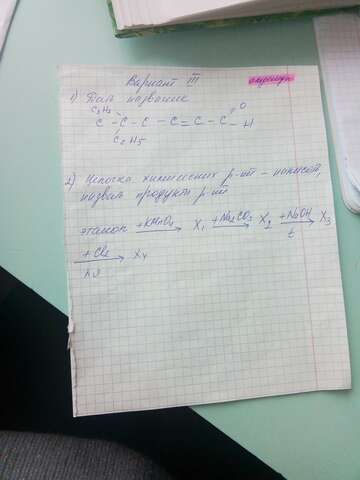 Вариант III
1) Дай название
C2H5
C - C - C - C = C - C = O - H
C2H5
2) Цепочка химических р-ий - написать,
назвать продукты р-ий
этанол +KMnO4 → X1 +Na2CO3 → X2 +NaOH t → X3
+Cl2 hυ → X4